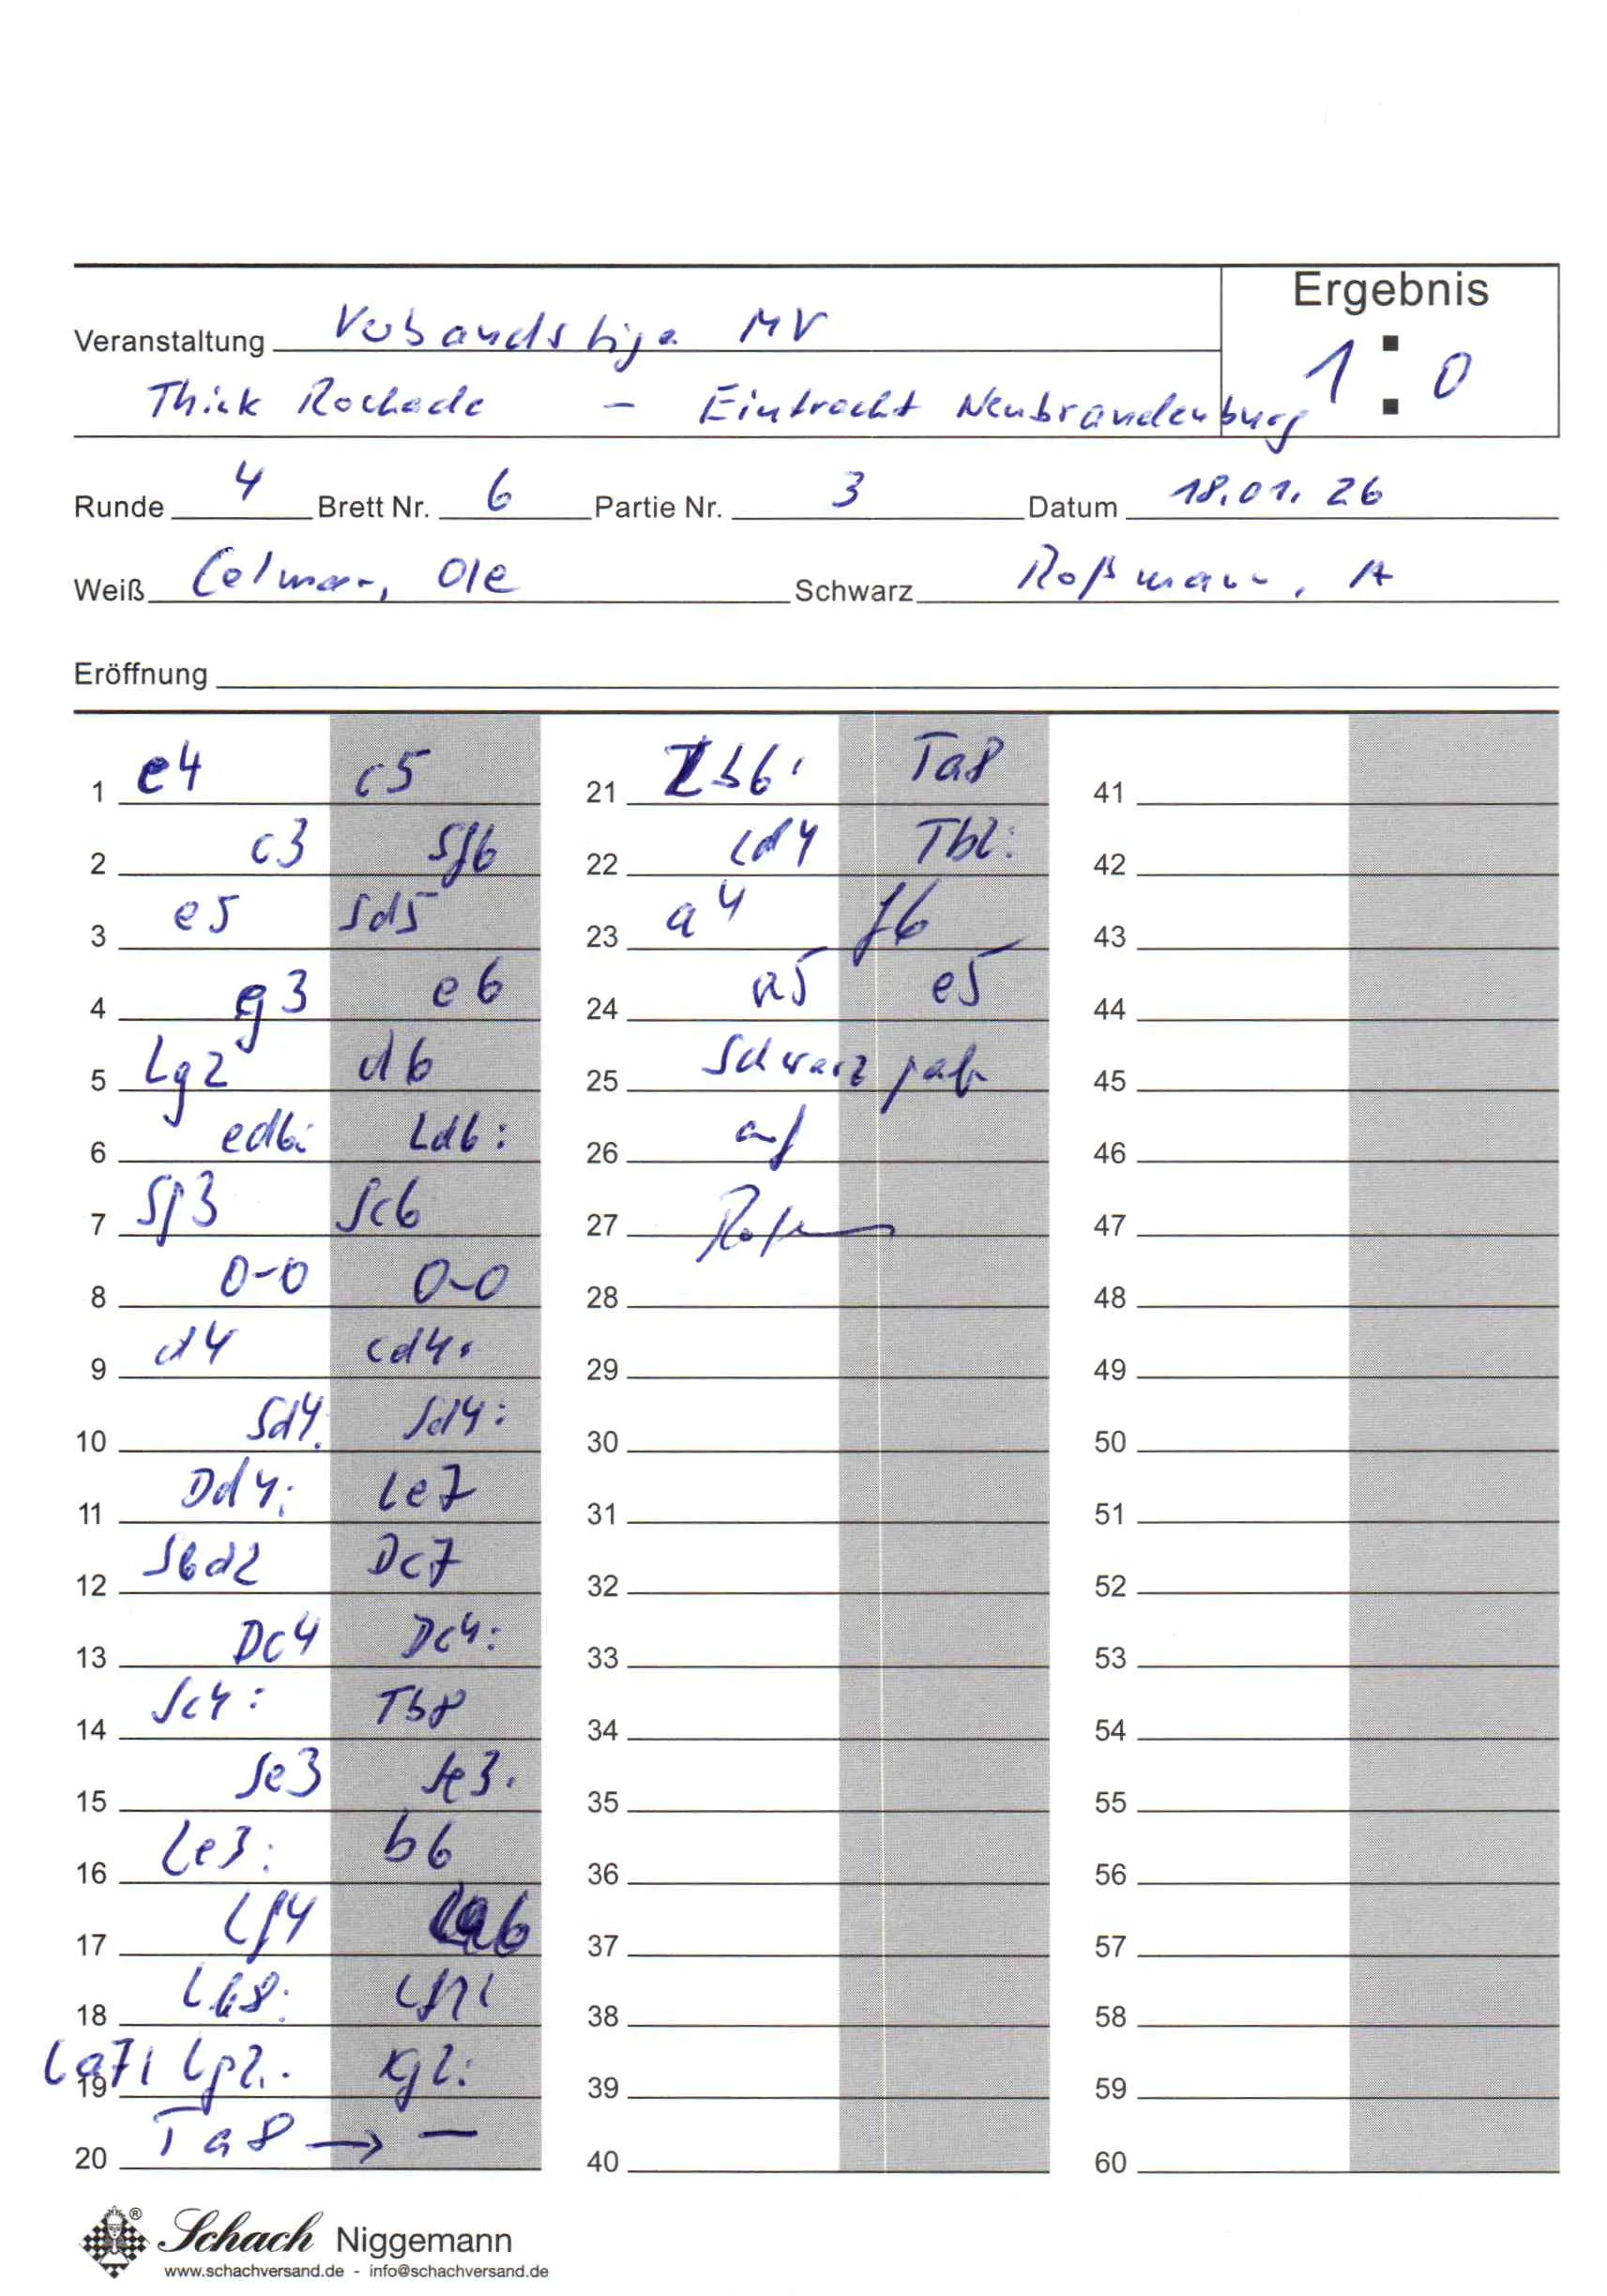 Ergebnis
Veranstaltung Verbandsliga MV
1 : 0
Think Rochade - Eintracht Neubrandenburg
Runde 4 Brett Nr. 6 Partie Nr. 3 Datum 18.01.26
Weiß Ole Schwarz Roßmann, A
Eröffnung
1 e4 c5
2 c3 Sf6
3 e5 Sd5
4 g3 e6
5 Lg2 d6
6 ed6: Ld6:
7 Sf3 Sc6
8 0-0 0-0
9 d4 cd4:
10 Sd4: Sd4:
11 Dd4: Le7
12 Sbd2 Dc7
13 Dc4 Dc4:
14 Sc4: Tb8
15 Se3 Se3:
16 Le3: b6
17 Lf4 La6
18 Lb8: Lf1:
19 La7: Lg2: Kg2:
20 Ta8 → —
21 Lb6: Ta8
22 Ld4 Tb2:
23 a4 f6
24 a5 e5
25 Schwarz gab
26 auf
27
28
29
30
31
32
33
34
35
36
37
38
39
40
41
42
43
44
45
46
47
48
49
50
51
52
53
54
55
56
57
58
59
60
® Schach Niggemann
www.schachversand.de - info@schachversand.de